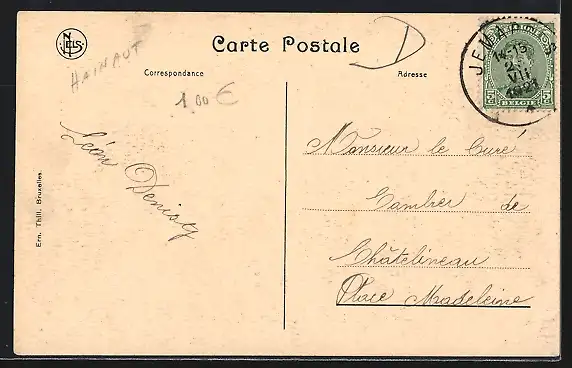 NELS
HAINAUT
Carte Postale
D
Correspondance
1.00 €
Adresse
JEMAPPES
14-15
2
VII
1921
5
5
BELGIE
Léon
Ern. Thill, Bruxelles.
Monsieur le Curé
Cambier de
Châtelineau
Place Madeleine